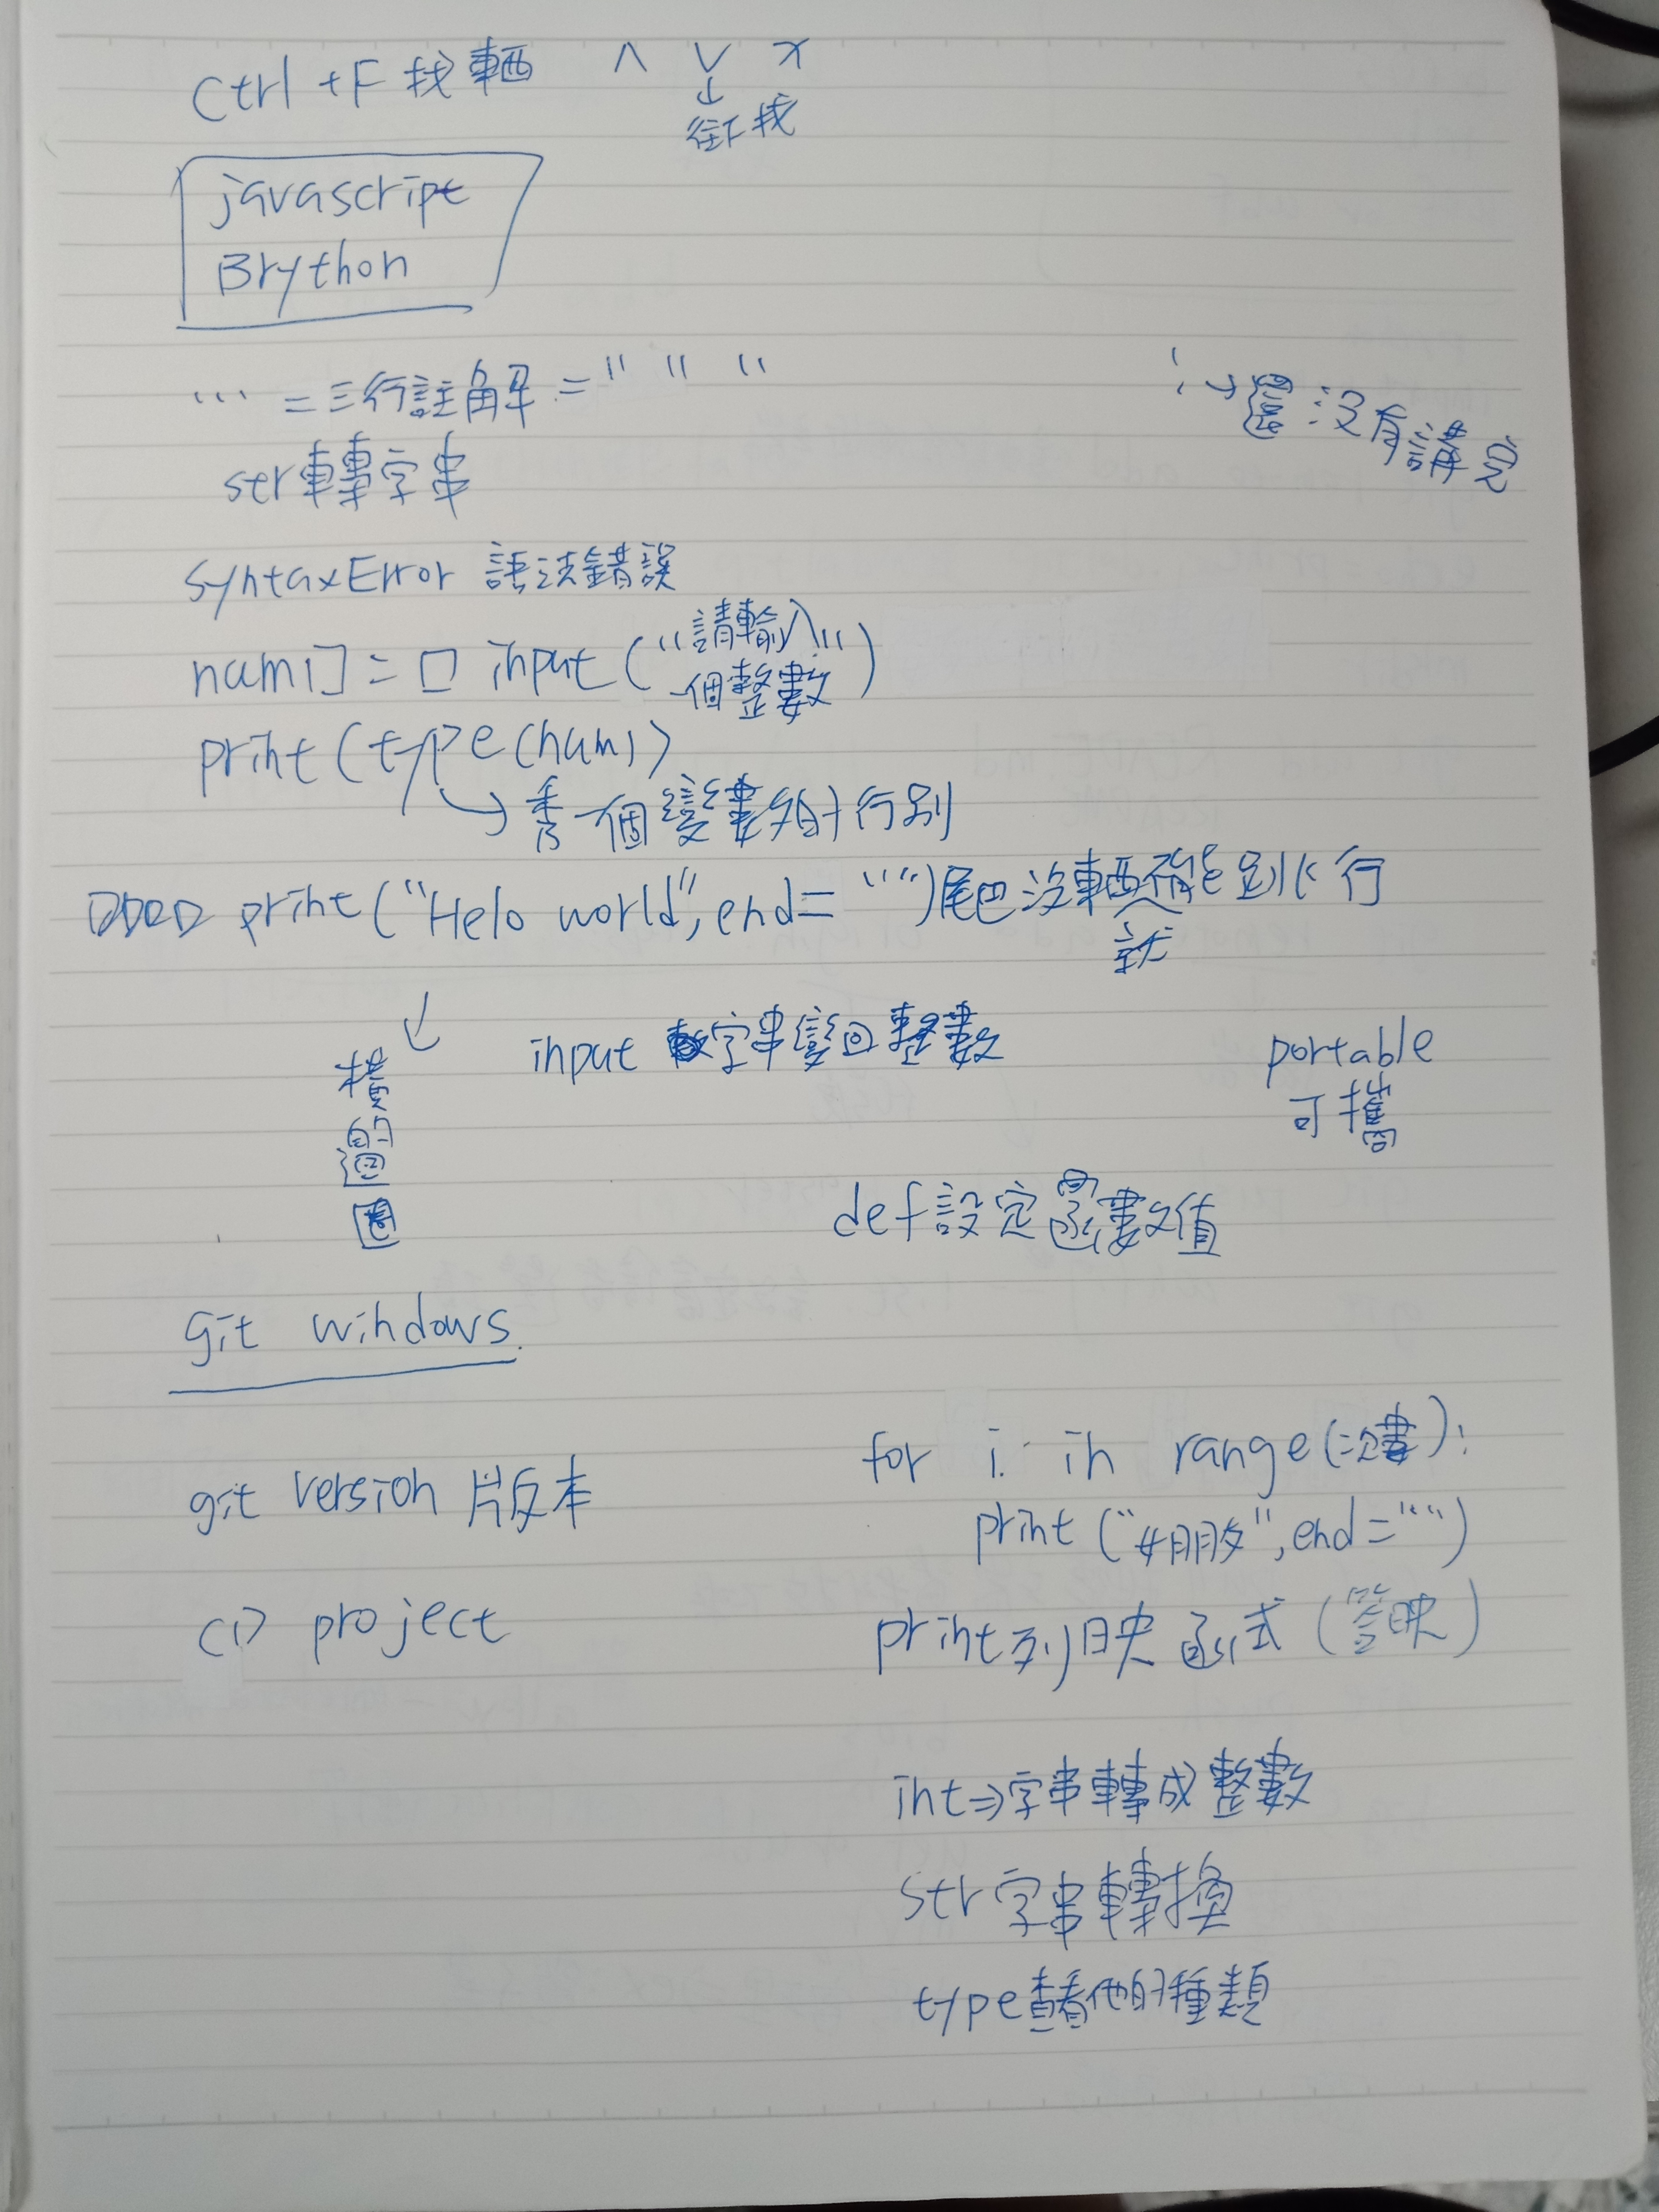 Ctrl +F 找東西 ∧ ∨ x
↓
往下找
javascript
Brython
''' = 三行註解 = " " "
; → 還沒有講完
str轉字串
syntaxError 語法錯誤
num1 = □ input ("請輸入
一個整數")
print (type (num1)
→ 秀一個變數的行別
print ("Helo world", end= "") 尾巴沒東西 能到下行
就
↓
橫的迴圈
input 字串變回整數
portable
可攜
def設定函數值
git windows.
git version 版本
for i in range(次數):
print ("#朋友", end="")
(1) project
print 列映函式 (螢映)
int⇒字串轉成整數
str 字串轉換
type查看他的種類